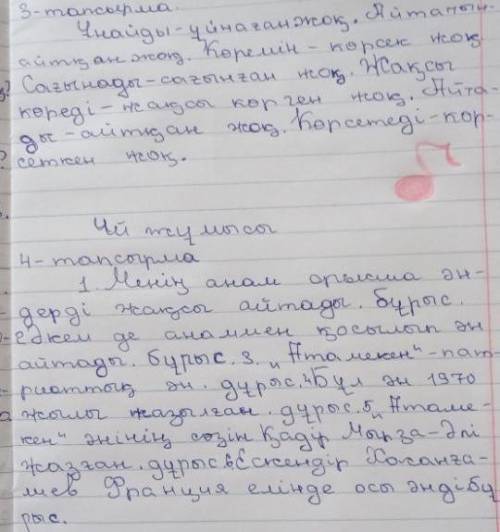 3-тапсырма
Ұнайды-ұйнаған жоқ. Айтамын-
айтқан жоқ. Көремін-көрсек жоқ
Сағынады-сағынған жоқ. Жақсы
көреді-жақсы көрген жоқ. Айта-
ды-айтқан жоқ. Көрсетеді-көр-
сеткен жоқ.
Үй жұмысы
4-тапсырма
1. Менің анам орысша ән-
дерді жақсы айтады. бұрыс.
екем де анаммен қосылып ән
айтады. бұрыс. 3. „Атамекен"-пат-
риоттық ән. дұрыс. 4 Бұл ән 1970
жылы жазылған. дұрыс. 5. „Атаме-
кен" әнінің сөзін Қадур Мырза-Әлі
жазған. дұрыс 6 Ескендір Хасанға-
лиев Франция елінде осы әнді бұ
рыс.